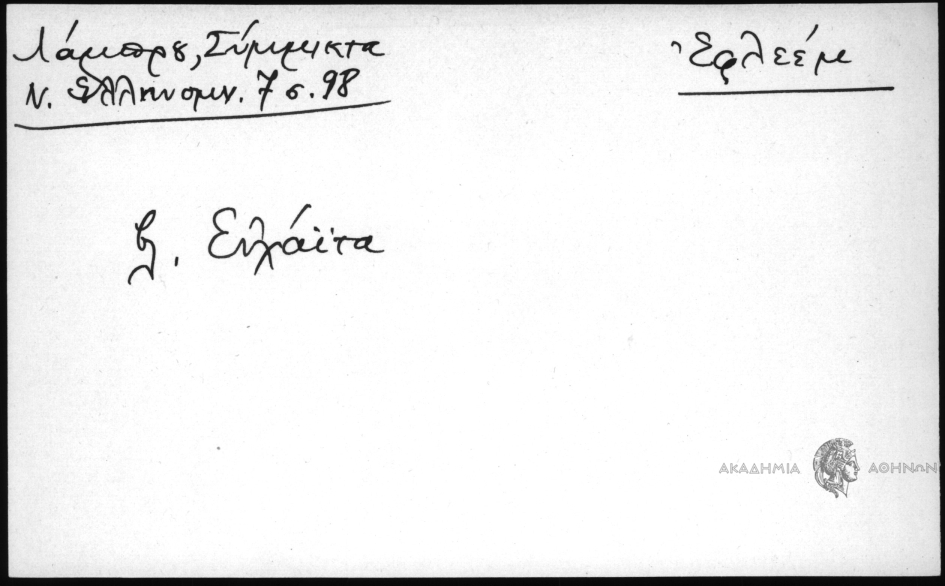 Λάμπρου, Σύμμικτα
Ν. Ἑλληνομν. 7 σ. 98
Ἐφλεέμ
βλ. Εὐχάϊτα
ΑΚΑΔΗΜΙΑ ΑΘΗΝΩΝ